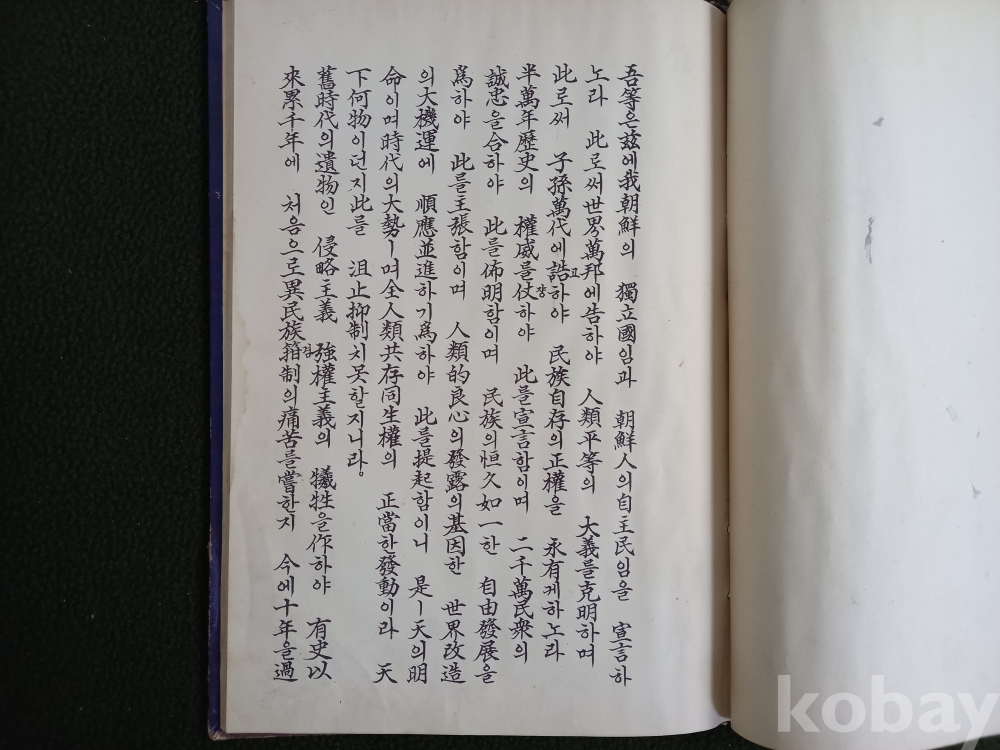 吾等은玆에我朝鮮의 獨立國임과 朝鮮人의自主民임을 宣言하
노라 此로써世界萬邦에告하야 人類平等의 大義를克明하며
此로써 子孫萬代에誥고하야 民族自存의正權을 永有케하노라
半萬年歷史의 權威를仗장하야 此를宣言함이며 二千萬民衆의
誠忠을合하야 此를佈明함이며 民族의恒久如一한 自由發展을
爲하야 此를主張함이며 人類的良心의發露의基因한 世界改造
의大機運에 順應並進하기爲하야 此를提起함이니 是ㅣ天의明
命이며時代의大勢ㅣ며全人類共存同生權의 正當한發動이라 天
下何物이던지此를 沮止抑制치못할지니라。
舊時代의遺物인 侵略主義 强權主義의 犧牲을作하야 有史以
來累千年에 처음으로異民族箝겸制의痛苦를嘗한지 今에十年을過
kobay